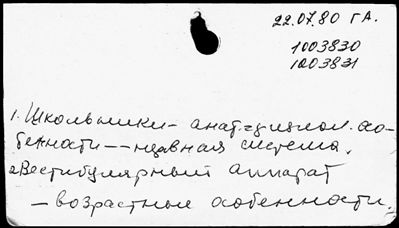 22.07.80 г А.
1003830
1003831
1. Школьники - анат.-физиол. осо-
бенности -- нервная система.
2. Вестибулярный аппарат
- возрастные особенности.